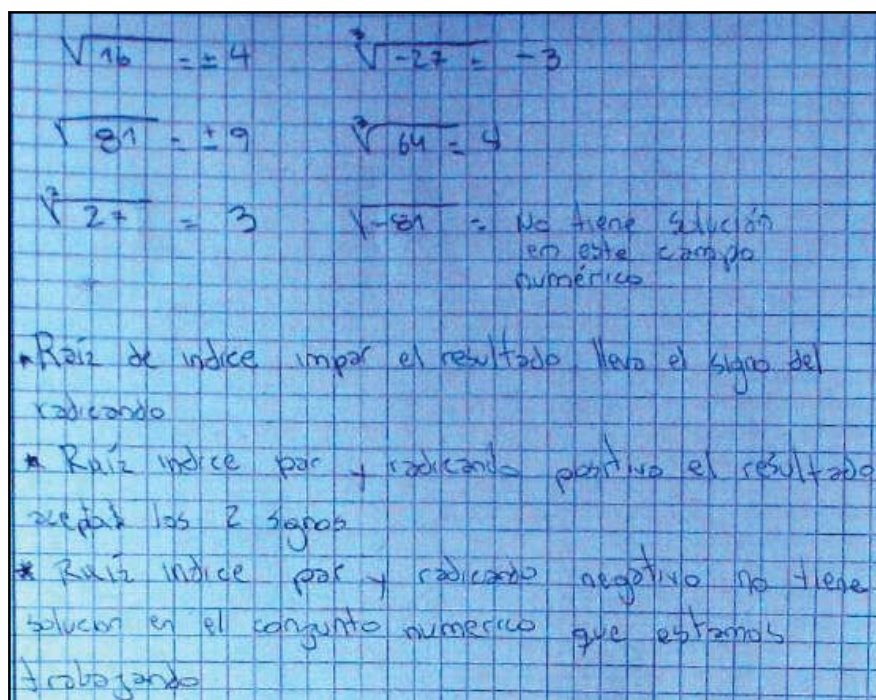 √16 = ±4 ∛-27 = -3
√81 = ±9 ∛64 = 4
∛27 = 3 √-81 = No tiene solución
en este campo
numérico
* Raíz de indice impar el resultado lleva el signo del
radicando
* Raíz indice par y radicando positivo el resultado
aceptak los 2 signos
* Raíz indice par y radicando negativo no tiene
solucion en el congunto numerico que estamos
trabagando